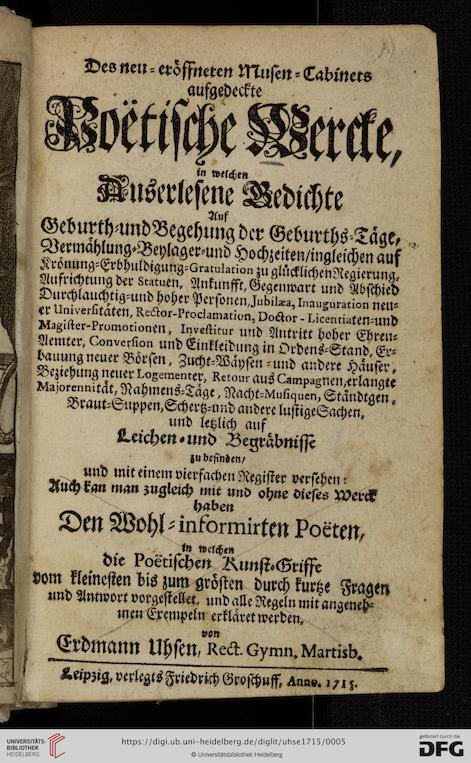 Des neu-eröffneten Musen-Cabinets
aufgedeckte
Poëtische Wercke,
in welchen
Auserlesene Gedichte
Auf
Geburth-und Begehung der Geburths-Täge,
Vermählung-Beylager-und Hochzeiten/ingleichen auf
Krönung-Erbhuldigung-Gratulation zu glücklichen Regierung,
Aufrichtung der Statuen, Ankunfft, Gegenwart und Abschied
Durchlauchtig-und hoher Personen, Jubilæa, Inauguration neu-
er Universitäten, Rector-Proclamation, Doctor-Licentiaten-und
Magister-Promotionen, Investitur und Antritt hoher Ehren-
Aemter, Conversion und Einkleidung in Ordens-Stand, Er-
bauung neuer Börsen, Zucht-Wäysen-und andere Häuser,
Beziehung neuer Logementer, Retour aus Campagnen, erlangte
Majorennität, Nahmens-Täge, Nacht-Musiquen, Ständtgen,
Braut-Suppen, Schertz-und andere lustige Sachen,
und letzlich auf
Leichen-und Begräbnisse
zu befinden/
und mit einem vierfachen Register versehen:
Auch kan man zugleich mit und ohne dieses Werck
haben
Den Wohl-informirten Poëten,
in welchen
die Poëtischen Kunst-Griffe
vom kleinesten bis zum grösten durch kurtze Fragen
und Antwort vorgestellet, und alle Regeln mit angeneh-
men Exempeln erkläret werden,
von
Erdmann Uhsen, Rect. Gymn. Martisb.
Leipzig, verlegts Friedrich Groschuff, Anno. 1715.
UNIVERSITÄTS-
BIBLIOTHEK
HEIDELBERG
https://digi.ub.uni-heidelberg.de/diglit/uhse1715/0005
© Universitätsbibliothek Heidelberg
gefördert durch die
DFG